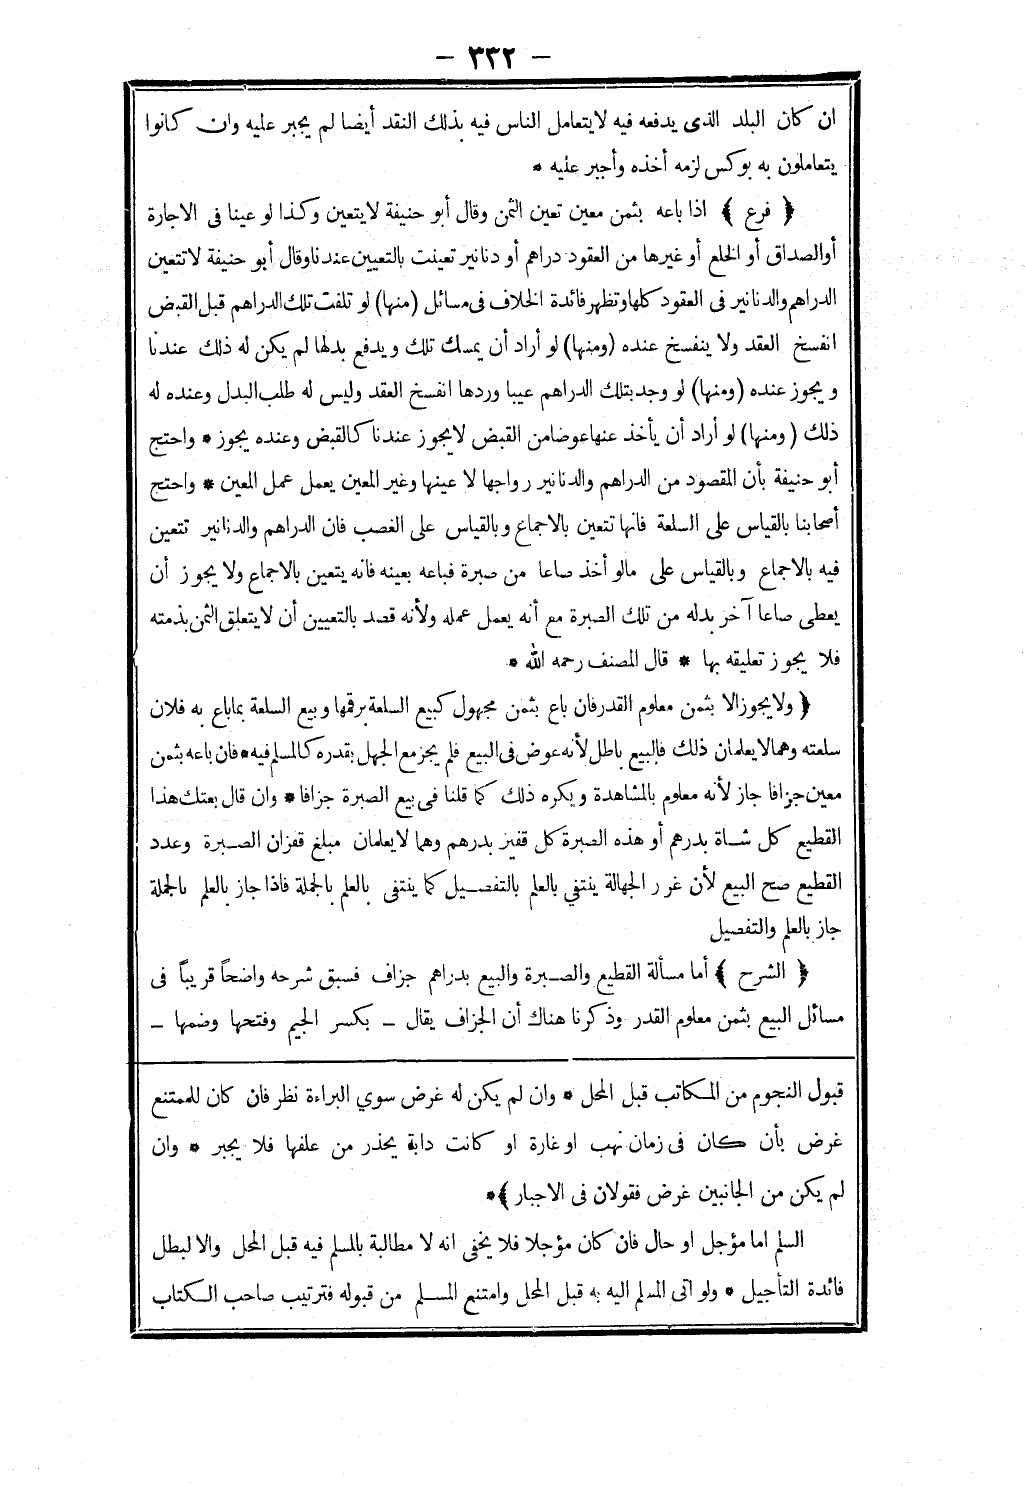 — ٣٣٢ —
ان كان البلد الذى يدفعه فيه لايتعامل الناس فيه بذلك النقد أيضا لم يجبر عليه وان كانوا
يتعاملون به بوكس لزمه أخذه وأجبر عليه *
﴿ فرع ﴾ اذا باعه بثمن معين تعين الثمن وقال أبو حنيفة لايتعين وكذا لو عينا فى الاجارة
أوالصداق أو الخلع أو غيرها من العقود دراهم أو دنانير تعينت بالتعيين عندنا وقال أبو حنيفة لا تتعين
الدراهم والدنانير فى العقود كلها وتظهر فائدة الخلاف فى مسائل (منها) لو تلفت تلك الدراهم قبل القبض
انفسخ العقد ولا ينفسخ عنده (ومنها) لو أراد أن يمسك تلك ويدفع بدلها لم يكن له ذلك عندنا
ويجوز عنده (ومنها) لو وجد بتلك الدراهم عيبا وردها انفسخ العقد وليس له طلب البدل وعنده له
ذلك (ومنها) لو أراد أن يأخذ عنها عوضا من القبض لايجوز عندنا كالقبض وعنده يجوز * واحتج
أبو حنيفة بأن المقصود من الدراهم والدنانير رواجها لا عينها وغير المعين يعمل عمل المعين * واحتج
أصحابنا بالقياس على السلعة فانها تتعين بالاجماع وبالقياس على الغصب فان الدراهم والدنانير تتعين
فيه بالاجماع وبالقياس على مالو أخذ صاعا من صبرة فباعه بعينه فانه يتعين بالاجماع ولا يجوز أن
يعطى صاعا آخر بدله من تلك الصبرة مع أنه يعمل عمله ولأنه قصد بالتعيين أن لايتعلق الثمن بذمته
فلا يجوز تعليقه بها * قال المصنف رحمه الله *
﴿ ولا يجوز الا بثمن معلوم القدر فان باع بثمن مجهول كبيع السلعة برقمها وبيع السلعة بماباع به فلان
سلعته وهما لا يعلمان ذلك فالبيع باطل لأنه عوض فى البيع فلم يجز مع الجهل بقدره كالمسلم فيه * فان باعه بثمن
معين جزافا جاز لأنه معلوم بالمشاهدة ويكره ذلك كما قلنا فى بيع الصبرة جزافا * وان قال بعتك هذا
القطيع كل شاة بدرهم أو هذه الصبرة كل قفيز بدرهم وهما لا يعلمان مبلغ قفزان الصبرة وعدد
القطيع صح البيع لأن غرر الجهالة ينتفي بالعلم بالتفصيل كما ينتفى بالعلم بالجملة فاذا جاز بالعلم بالجملة
جاز بالعلم والتفصيل
﴿ الشرح ﴾ أما مسألة القطيع والصبرة والبيع بدراهم جزاف فسبق شرحه واضحاً قريباً فى
مسائل البيع بثمن معلوم القدر وذكرنا هناك أن الجزاف يقال – بكسر الجيم وفتحها وضمها –
قبول النجوم من المكاتب قبل المحل * وان لم يكن له غرض سوي البراءة نظر فان كان للممتنع
غرض بأن كان فى زمان نهب او غارة او كانت دابة يحذر من علفها فلا يجبر * وان
لم يكن من الجانبين غرض فقولان فى الاجبار ﴾*
السلم اما مؤجل او حال فان كان مؤجلا فلا يخفى انه لا مطالبة بالمسلم فيه قبل المحل والا لبطل
فائدة التأجيل * ولو اتى المسلم اليه به قبل المحل وامتنع المسلم من قبوله فترتيب صاحب الكتاب